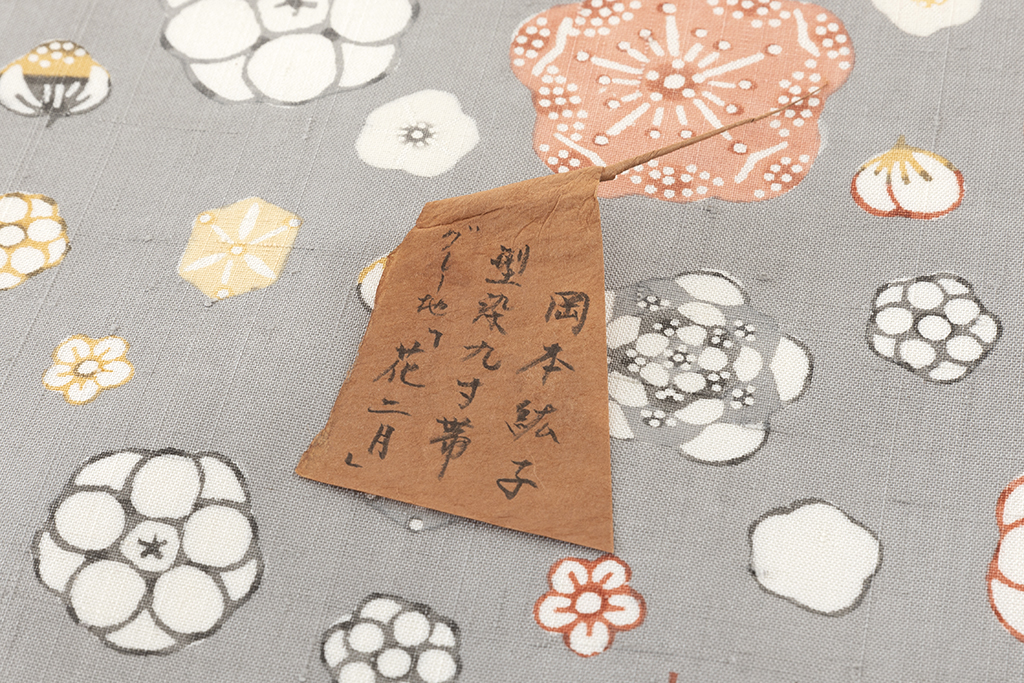 岡本紘子
型染九寸帯
グレー地「花二月」